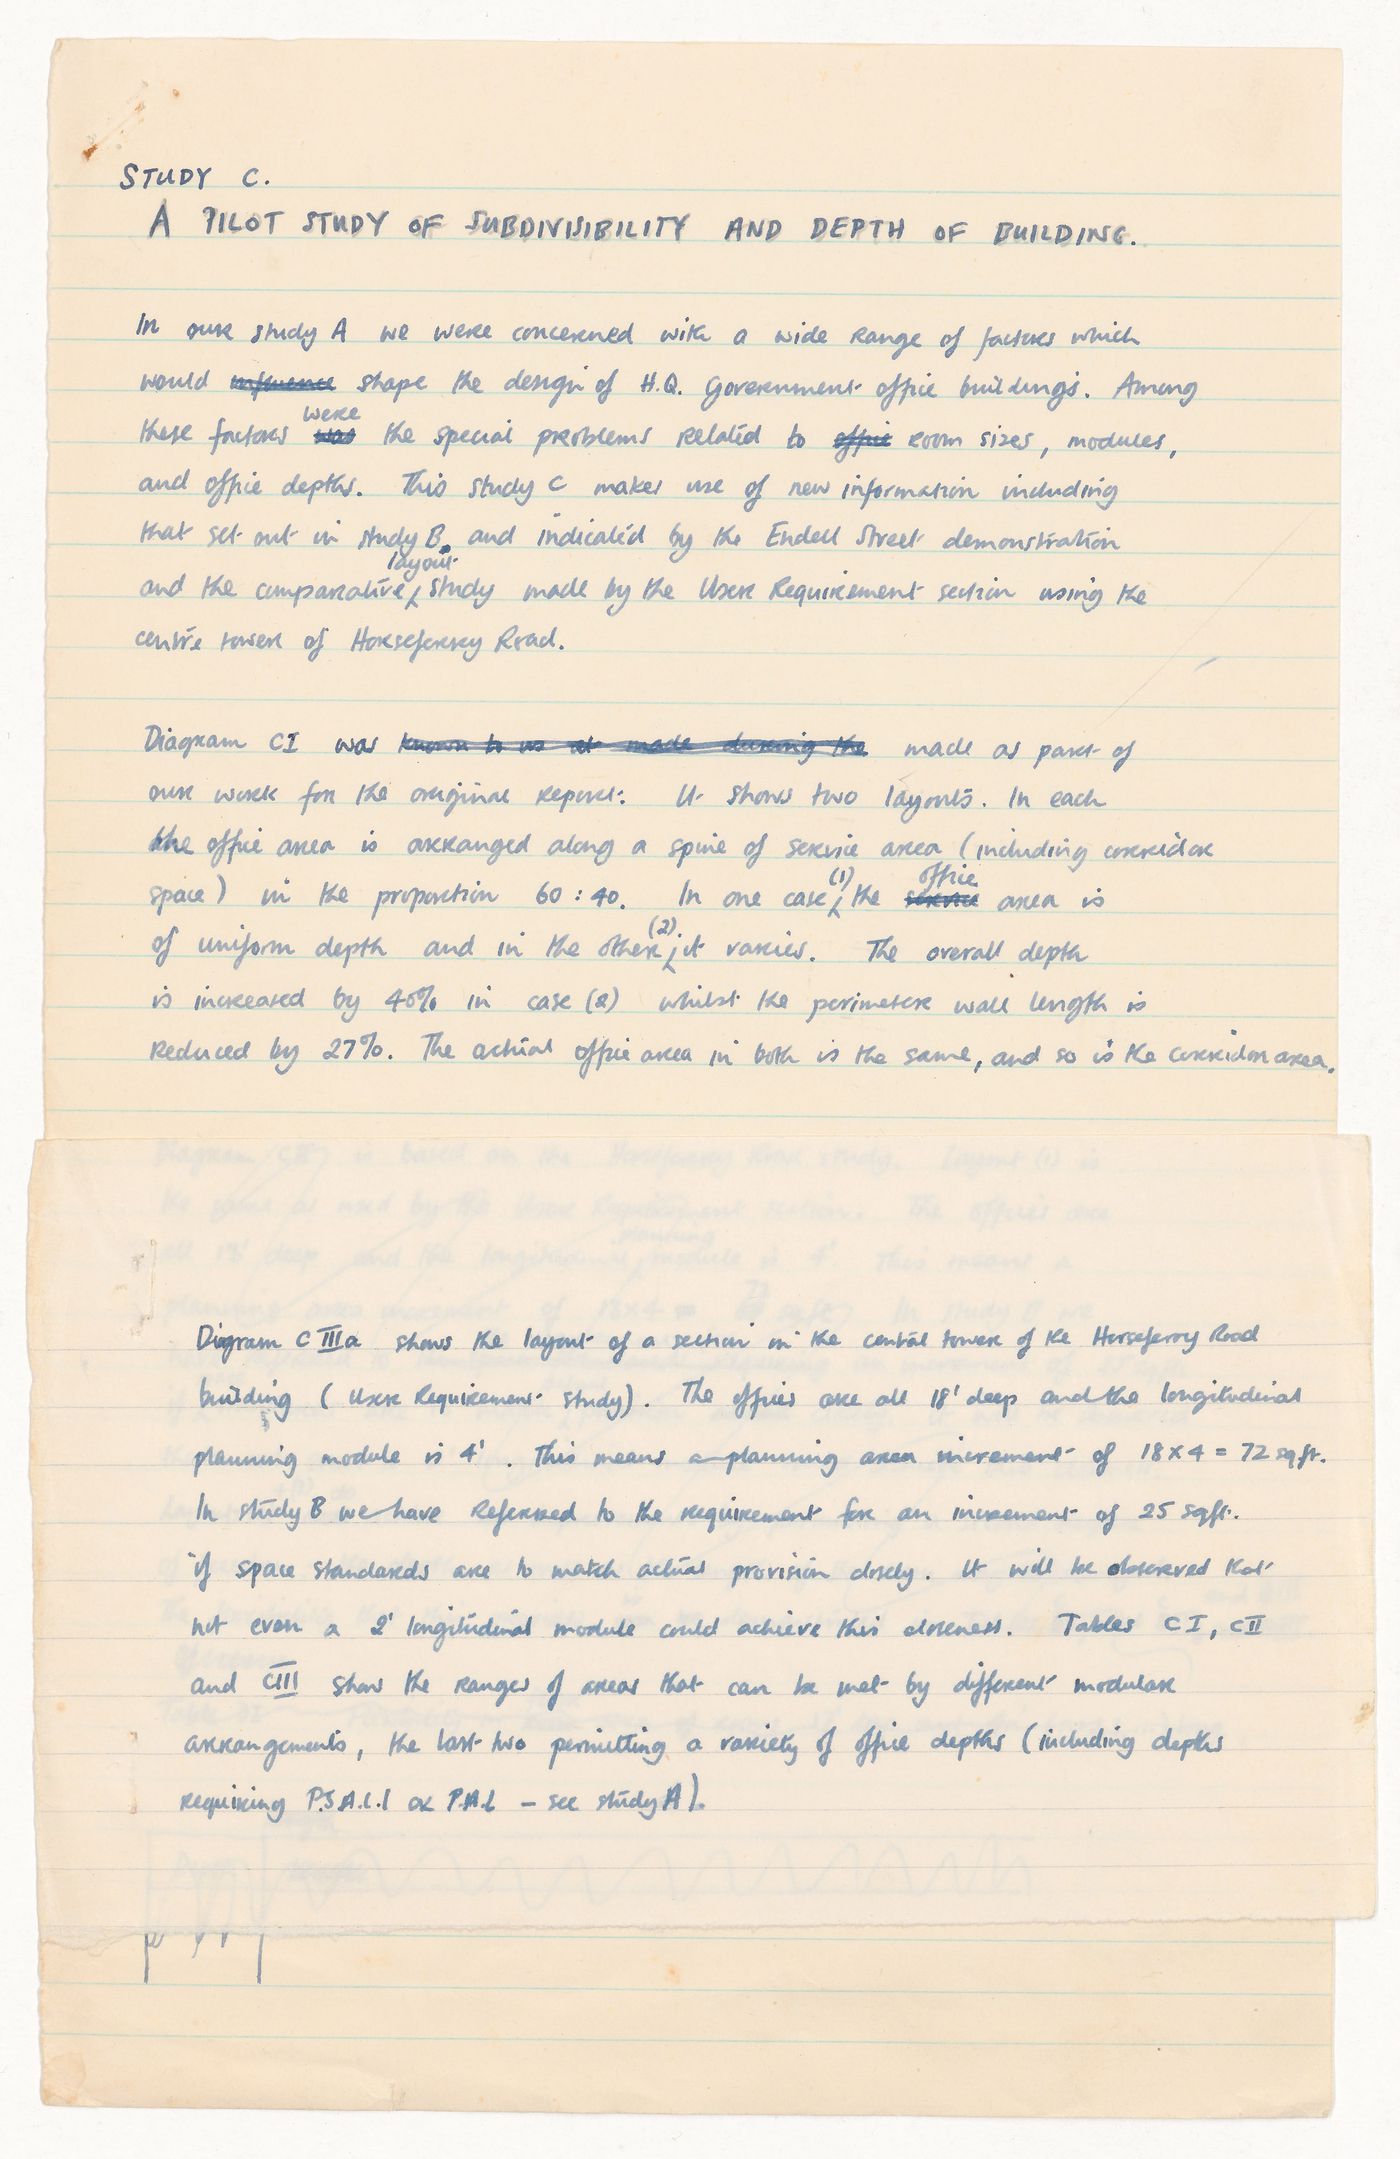 STUDY C.
A PILOT STUDY OF SUBDIVISIBILITY AND DEPTH OF BUILDING.
In our study A we were concerned with a wide range of factors which
would influence shape the design of H.Q. Government office buildings. Among
were
these factors was the special problems related to office room sizes, modules,
and office depths. This study C makes use of new information including
that set out in study B, and indicated by the Endell Street demonstration
layout
and the comparative study made by the User Requirement section using the
centre tower of Horseferry Road.
Diagram CI was known to us at made during the made as part of
our work for the original report. It shows two layouts. In each
the office area is arranged along a spine of service area (including corridor
(1) office
space) in the proportion 60:40. In one case the service area is
(2)
of uniform depth and in the other it varies. The overall depth
is increased by 40% in case (2) whilst the perimeter wall length is
reduced by 27%. The actual office area in both is the same, and so is the corridor area.
Diagram CII is based on the Horseferry Road study. Layout (1) is
the same as used by the User Requirement section. The offices are
planning
all 18' deep and the longitudinal module is 4'. This means a
planning area increment of 18x4 = 72 sq ft. In study B we
Diagram C IIIa shows the layout of a section in the central tower of the Horseferry Road
building (User Requirement study). The offices are all 18' deep and the longitudinal
planning module is 4'. This means a planning area increment of 18x4 = 72 sq.ft.
In study B we have referred to the requirement for an increment of 25 sqft.
if space standards are to match actual provision closely. It will be observed that
not even a 2' longitudinal module could achieve this closeness. Tables CI, CII
and CIII show the ranges of areas that can be met by different modular
arrangements, the last two permitting a variety of office depths (including depths
requiring P.S.A.L.I or P.A.L - see study A).